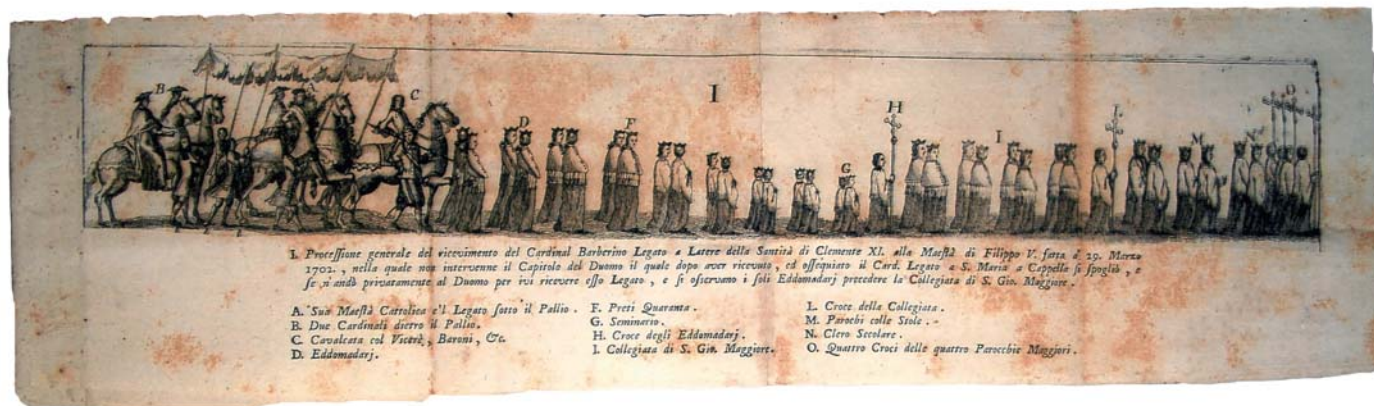 B
A
C
D
F
I
G
H
I
L
M
N
O
I. Processione generale del ricevimento del Cardinal Barberino Legato a Latere della Santità di Clemente XI. alla Maestà di Filippo V. fatta à 29. Marzo
1702., nella quale non intervenne il Capitolo del Duomo il quale dopo aver ricevuto, ed ossequiato il Card. Legato a S. Maria a Cappella si spogliò, e
se n'andò privatamente al Duomo per ivi ricevere esso Legato, e si osservano i soli Eddomadarj precedere la Collegiata di S. Gio. Maggiore.
A. Sua Maestà Cattolica e'l Legato sotto il Pallio.
B. Due Cardinali dietro il Pallio.
C. Cavalcata col Vicerè, Baroni, &c.
D. Eddomadarj.
F. Preti Quaranta.
G. Seminario.
H. Croce degli Eddomadarj.
I. Collegiata di S. Gio. Maggiore.
L. Croce della Collegiata.
M. Parochi colle Stole.
N. Clero Secolare.
O. Quattro Croci delle quattro Parocchie Maggiori.